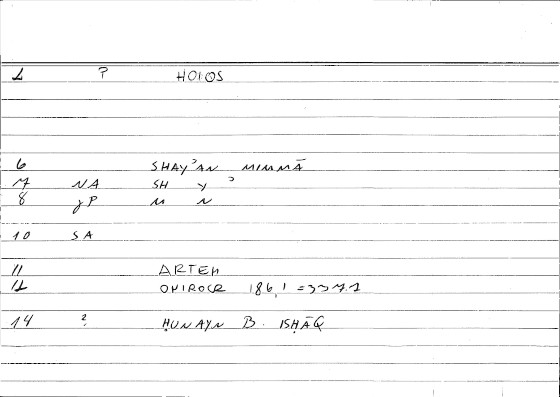 1 ? HOLOS
6 SHAYʾAN MIMMĀ
7 NA SH Y ʾ
8 gP M N
10 SA
11 ARTEM
12 ONIROCR 186,1 =337.1
14 ? ḤUNAYN B. ISḤĀQ